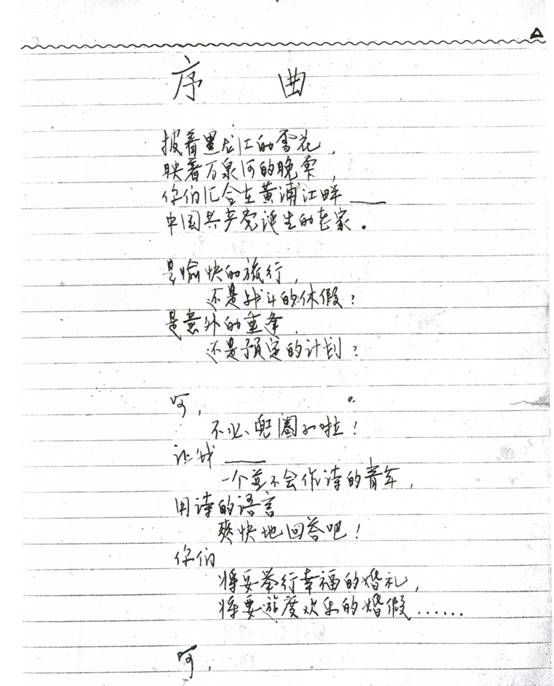 序 曲
披着黑龙江的雪花,
映着万泉河的晚霞,
你们汇合在黄浦江畔——
中国共产党诞生的老家。
是愉快的旅行,
还是战斗的休假?
是意外的重逢,
还是预定的计划?
呵,
不必兜圈子啦!
让我——
一个并不会作诗的青年,
用诗的语言
爽快地回答吧!
你们
将要举行幸福的婚礼,
将要欢度欢乐的婚假……
呵,